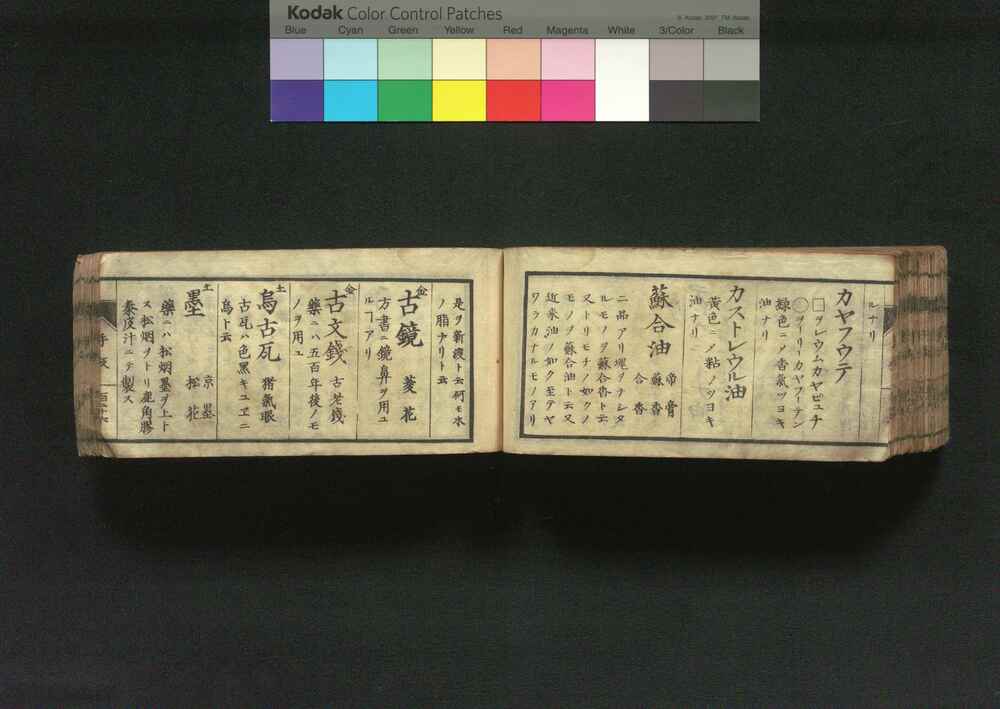 Kodak Color Control Patches
Blue Cyan Green Yellow Red Magenta White 3/Color Black
ルナリ
カヤフウテ
□ヲレウムカヤピュチ
○ヲイリーカヤフーテン
緑色ニノ香氣ツヨキ
油ナリ
カストレウル油
黃色ニノ粘ノツヨキ
油ナリ
蘇合油 帝膏
蘇香
合香
二品アリ塊ヲナレタ
ルモノヲ蘇合香ト云
又トリモチノ如クノ
モノヲ蘇合油ト云又
近来油ノ如ク至テヤ
ワラカナルモノアリ
是ヲ新渡ト云何モ木
ノ脂ナリト云
金
古鏡 菱花
方書ニ鏡鼻ヲ用ユ
ルヿアリ
金
古文錢 古老錢
藥ニハ五百年後ノモ
ノヲ用ユ
土
烏古瓦 猪氣眼
古瓦ハ色黑キユヱニ
烏ト云
土
墨 京墨
松花
藥ニハ松烟墨ヲ上ト
ス松烟ヲトリ鹿角膠
秦皮汁ニテ製ス